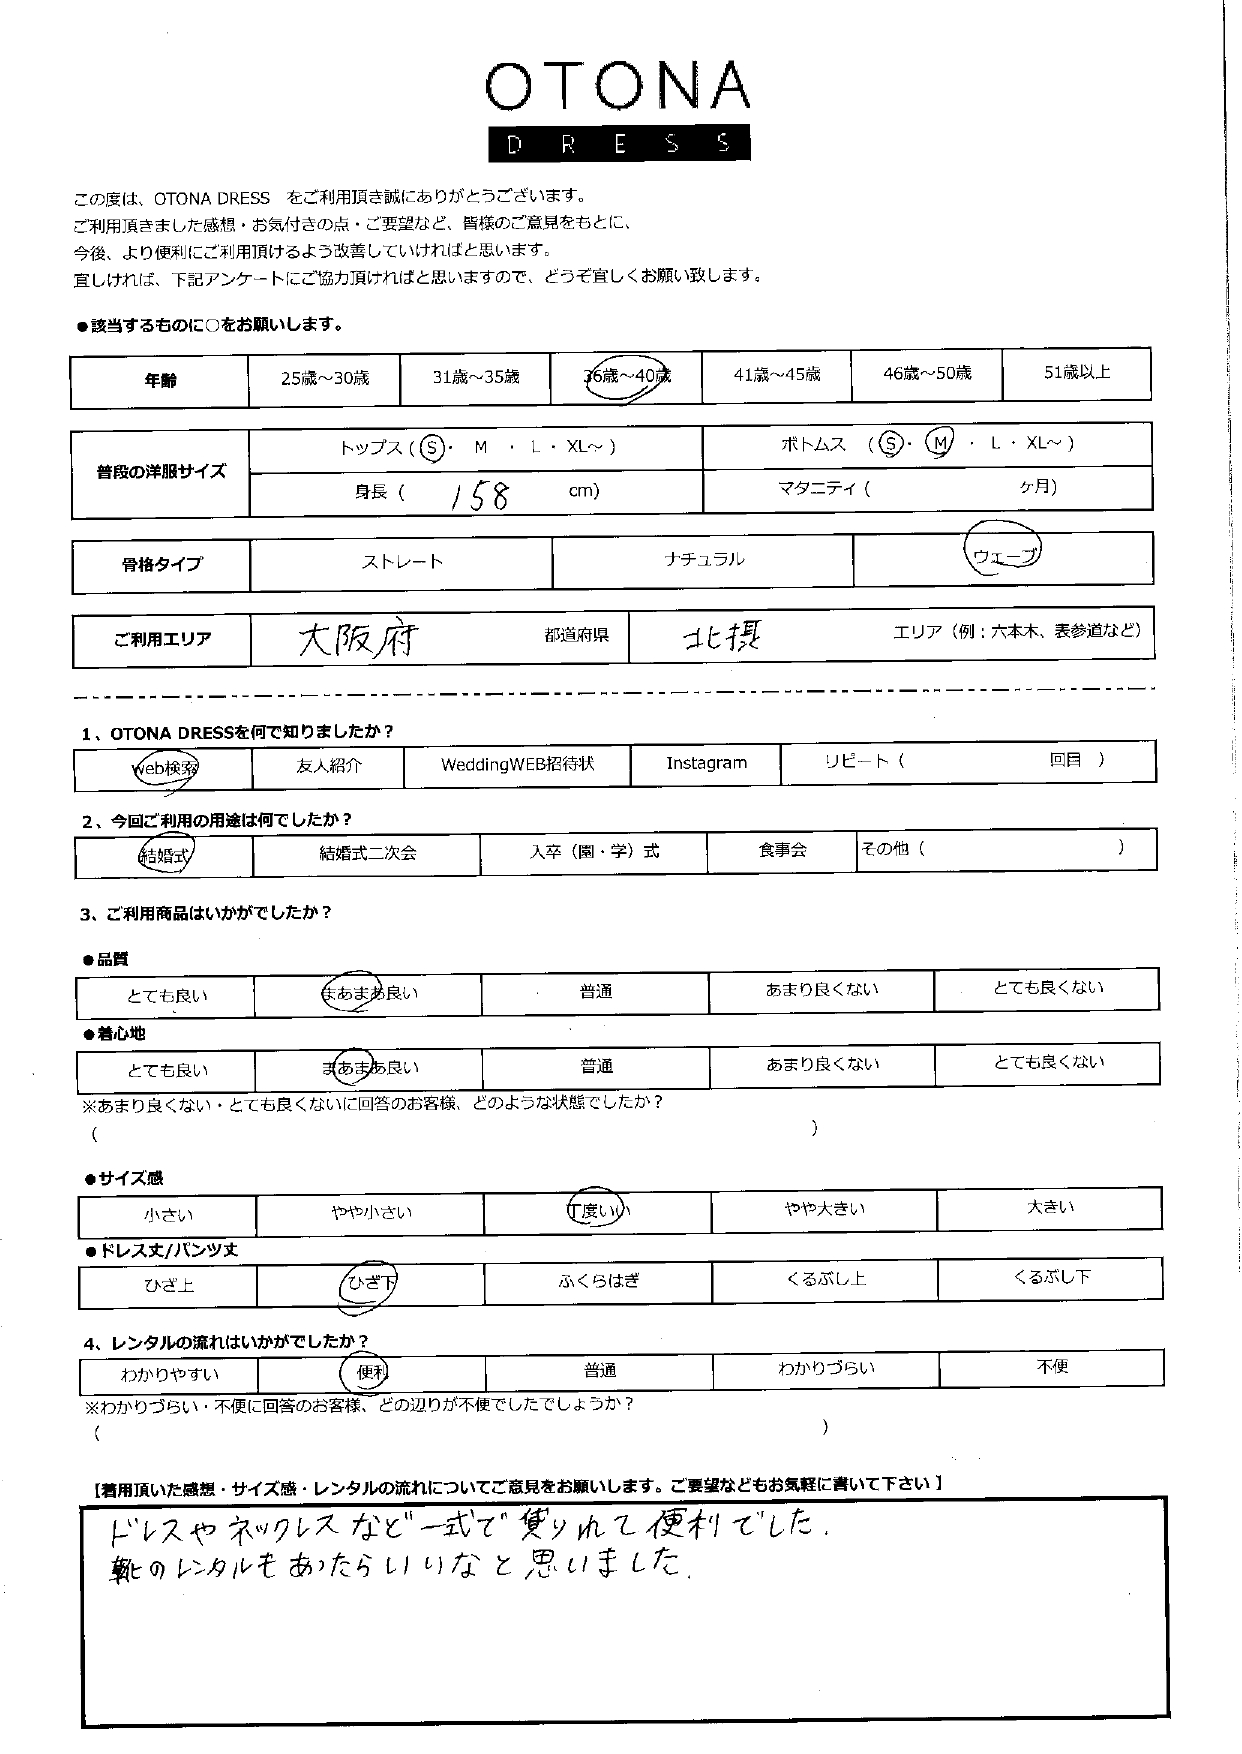 OTONA
DRESS
この度は、OTONA DRESS　をご利用頂き誠にありがとうございます。
ご利用頂きました感想・お気付きの点・ご要望など、皆様のご意見をもとに、
今後、より便利にご利用頂けるよう改善していければと思います。
宜しければ、下記アンケートにご協力頂ければと思いますので、どうぞ宜しくお願い致します。
●該当するものに○をお願いします。
年齢 25歳～30歳 31歳～35歳 36歳～40歳 41歳～45歳 46歳～50歳 51歳以上
普段の洋服サイズ トップス（ S ・ M ・ L ・ XL～ ） ボトムス （ S ・ M ・ L ・ XL～ ）
身長（ 158 cm) マタニティ（ ヶ月）
骨格タイプ ストレート ナチュラル ウェーブ
ご利用エリア 大阪府 都道府県 北摂 エリア（例：六本木、表参道など）
1、OTONA DRESSを何で知りましたか？
web検索 友人紹介 WeddingWEB招待状 Instagram リピート（ 回目 ）
2、今回ご利用の用途は何でしたか？
結婚式 結婚式二次会 入卒（園・学）式 食事会 その他（ ）
3、ご利用商品はいかがでしたか？
●品質
とても良い まあまあ良い 普通 あまり良くない とても良くない
●着心地
とても良い まあまあ良い 普通 あまり良くない とても良くない
※あまり良くない・とても良くないに回答のお客様、どのような状態でしたか？
（ ）
●サイズ感
小さい やや小さい 丁度いい やや大きい 大きい
●ドレス丈/パンツ丈
ひざ上 ひざ下 ふくらはぎ くるぶし上 くるぶし下
4、レンタルの流れはいかがでしたか？
わかりやすい 便利 普通 わかりづらい 不便
※わかりづらい・不便に回答のお客様、どの辺りが不便でしたでしょうか？
（ ）
【着用頂いた感想・サイズ感・レンタルの流れについてご意見をお願いします。ご要望などもお気軽に書いて下さい】
ドレスやネックレスなど一式で借りれて便利でした.
靴のレンタルもあったらいいなと思いました.